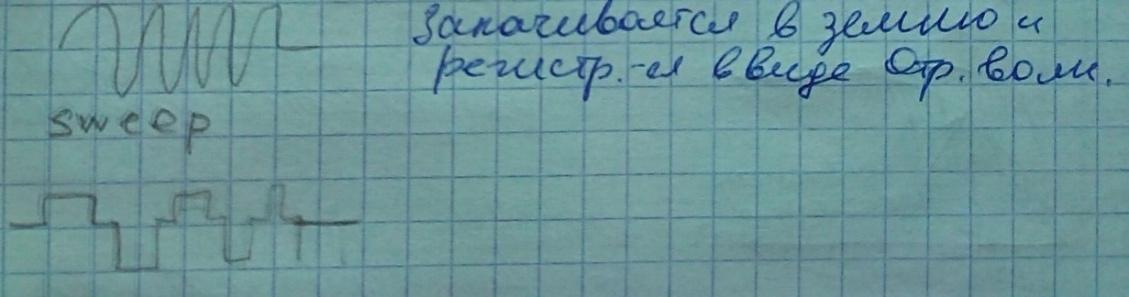 Закачивается в землю и
регистр.-я в виде Отр. волн.
sweep